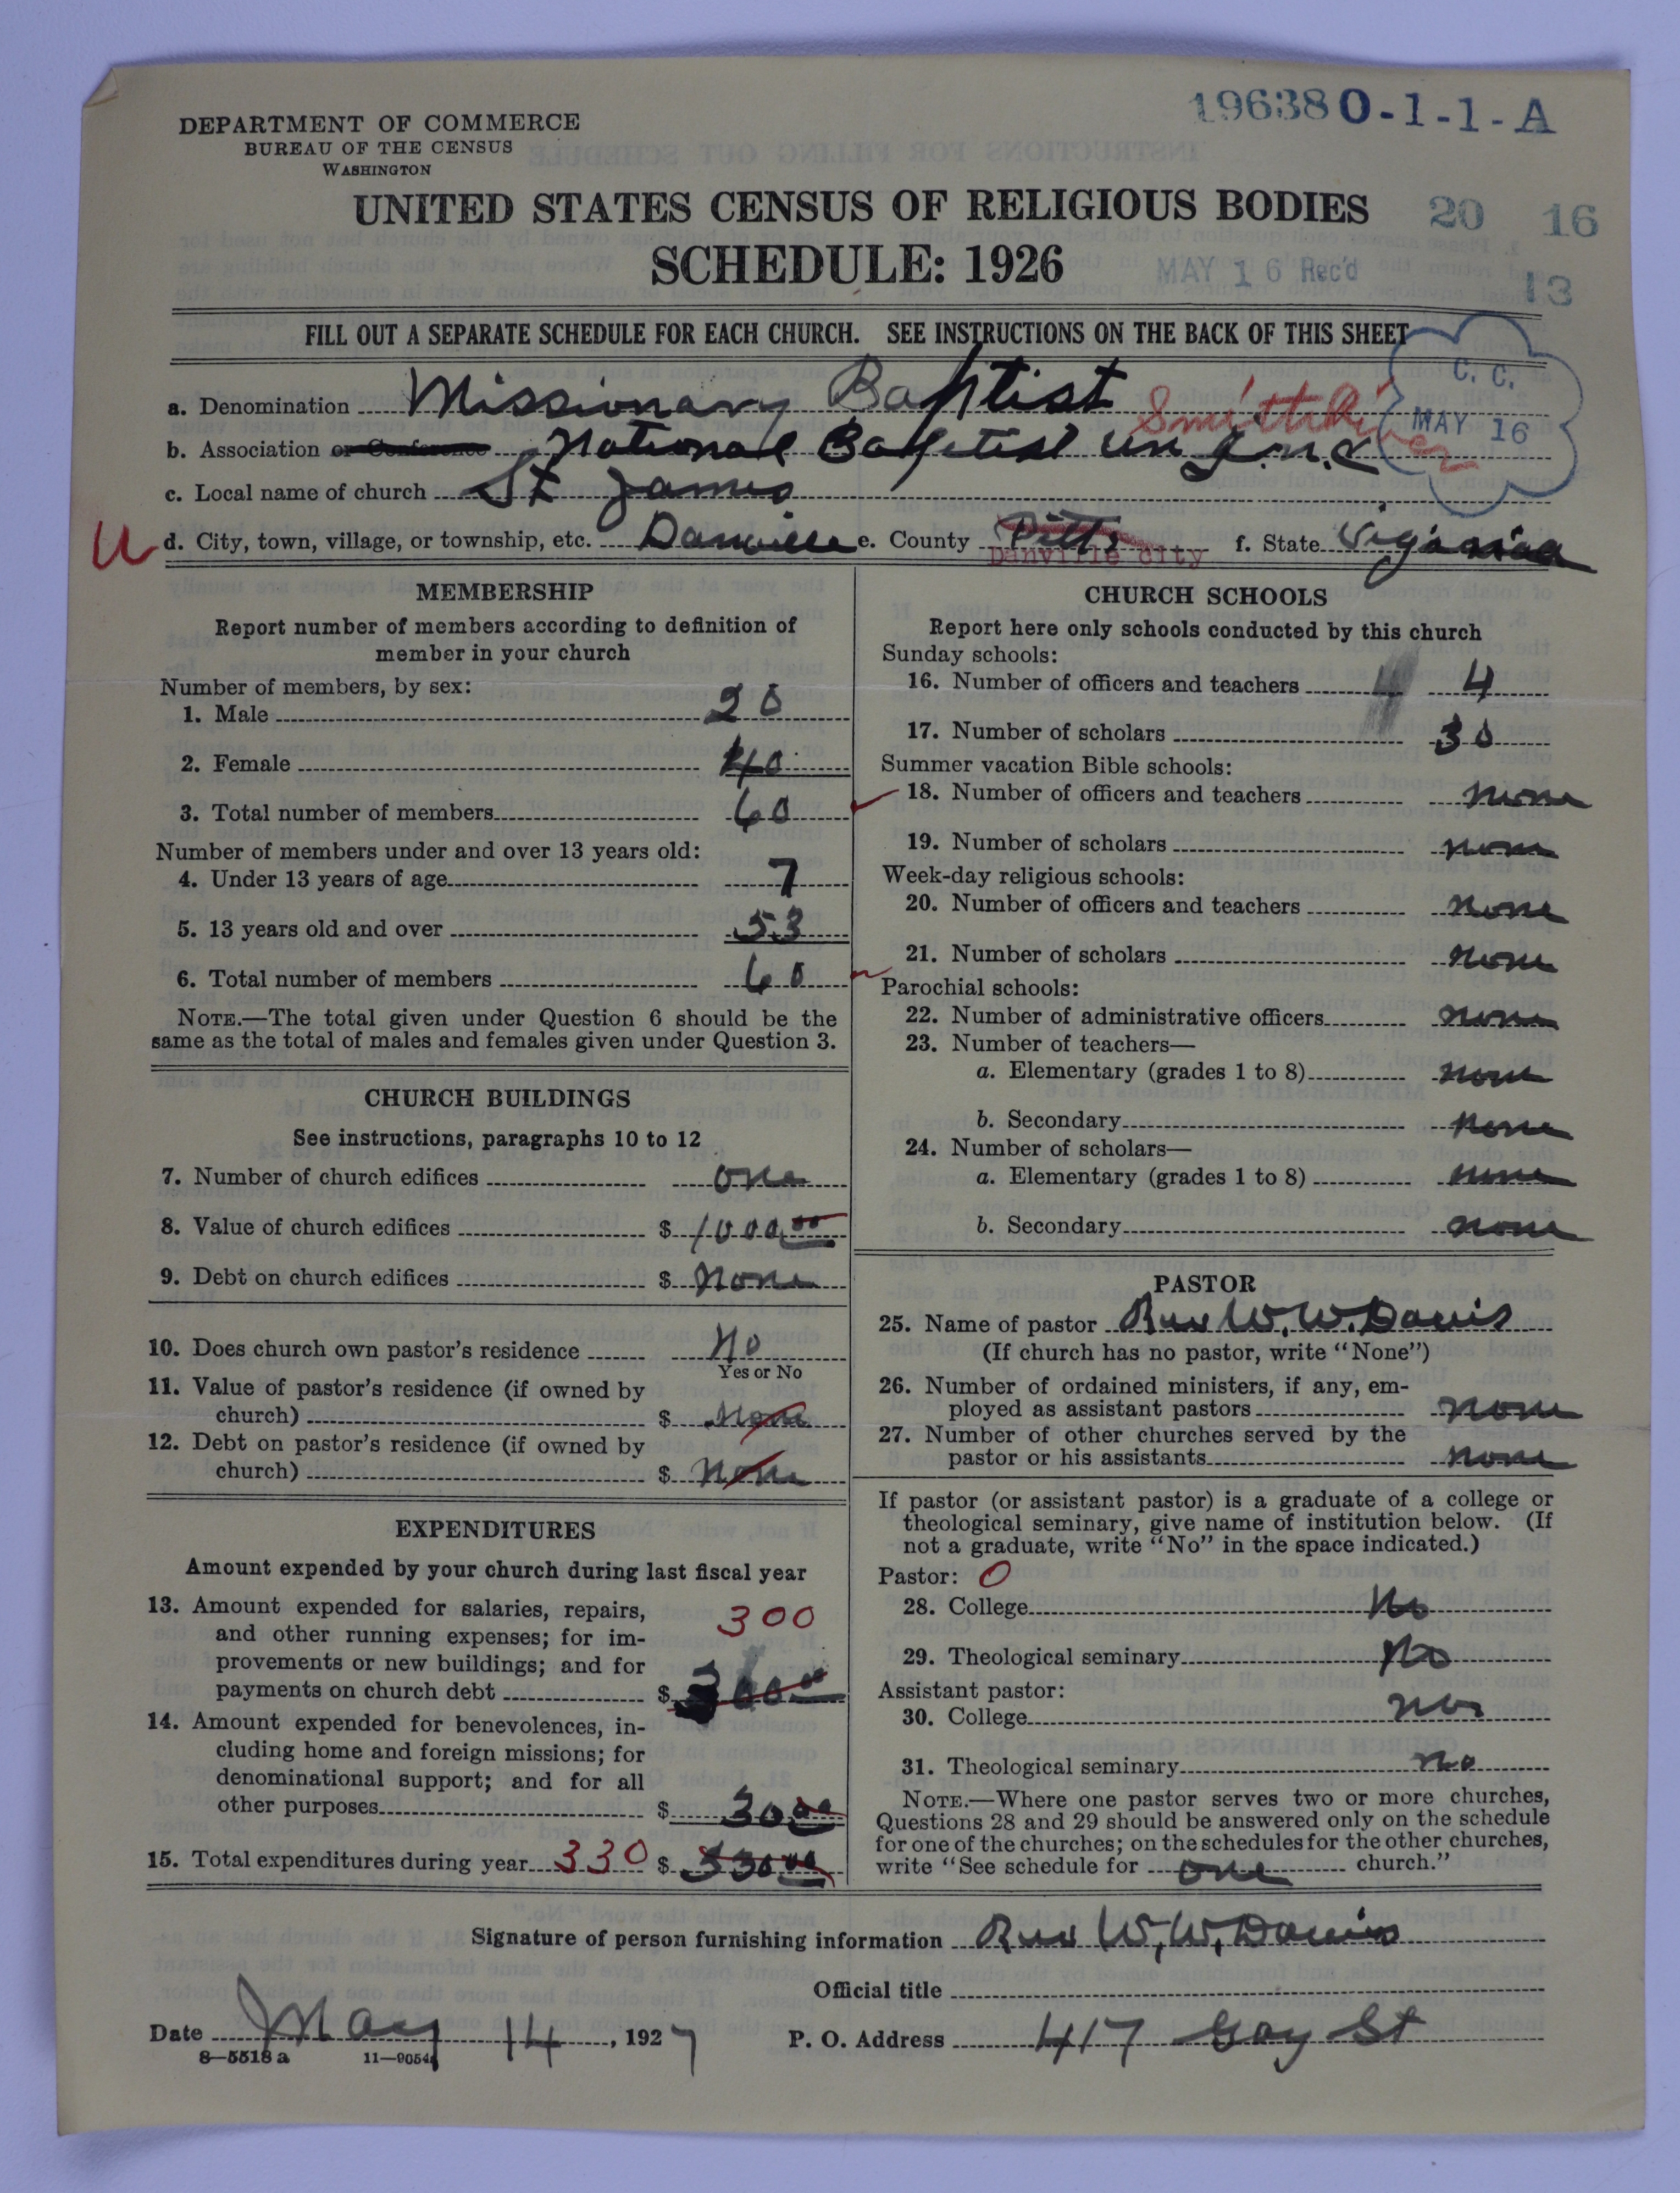 196380-1-1-A
DEPARTMENT OF COMMERCE
BUREAU OF THE CENSUS
WASHINGTON
UNITED STATES CENSUS OF RELIGIOUS BODIES
20 16
SCHEDULE: 1926
MAY 16 Rec'd
13
FILL OUT A SEPARATE SCHEDULE FOR EACH CHURCH. SEE INSTRUCTIONS ON THE BACK OF THIS SHEET
C. C.
MAY 16
a. Denomination Missionary Baptist
Smith River
b. Association or Conference National Baptist
c. Local name of church St James
U d. City, town, village, or township, etc. Danville e. County Pitts f. State Viginiaa
Danville city
MEMBERSHIP
Report number of members according to definition of
member in your church
Number of members, by sex:
1. Male 20
2. Female 40
3. Total number of members 60
Number of members under and over 13 years old:
4. Under 13 years of age 7
5. 13 years old and over 53
6. Total number of members 60
NOTE.—The total given under Question 6 should be the
same as the total of males and females given under Question 3.
CHURCH BUILDINGS
See instructions, paragraphs 10 to 12
7. Number of church edifices one
8. Value of church edifices $ 1000 00
9. Debt on church edifices $ None
10. Does church own pastor's residence No
Yes or No
11. Value of pastor's residence (if owned by
church) $ None
12. Debt on pastor's residence (if owned by
church) $ None
EXPENDITURES
Amount expended by your church during last fiscal year
13. Amount expended for salaries, repairs,
and other running expenses; for im-
provements or new buildings; and for
payments on church debt $ 300 00
300
14. Amount expended for benevolences, in-
cluding home and foreign missions; for
denominational support; and for all
other purposes $ 30 00
15. Total expenditures during year 330 $ 330 00
CHURCH SCHOOLS
Report here only schools conducted by this church
Sunday schools:
16. Number of officers and teachers 4 4
17. Number of scholars 30
Summer vacation Bible schools:
18. Number of officers and teachers none
19. Number of scholars none
Week-day religious schools:
20. Number of officers and teachers none
21. Number of scholars none
Parochial schools:
22. Number of administrative officers none
23. Number of teachers—
a. Elementary (grades 1 to 8) none
b. Secondary none
24. Number of scholars—
a. Elementary (grades 1 to 8) none
b. Secondary none
PASTOR
25. Name of pastor Rev W. W. Davis
(If church has no pastor, write "None")
26. Number of ordained ministers, if any, em-
ployed as assistant pastors none
27. Number of other churches served by the
pastor or his assistants none
If pastor (or assistant pastor) is a graduate of a college or
theological seminary, give name of institution below. (If
not a graduate, write "No" in the space indicated.)
Pastor: 0
28. College No
29. Theological seminary No
Assistant pastor:
30. College no
31. Theological seminary no
NOTE.—Where one pastor serves two or more churches,
Questions 28 and 29 should be answered only on the schedule
for one of the churches; on the schedules for the other churches,
write "See schedule for one church."
Signature of person furnishing information Rev W. W. Davis
Official title
Date May 14, 1927 P. O. Address 417 Gay St
8—5518 a 11—9054